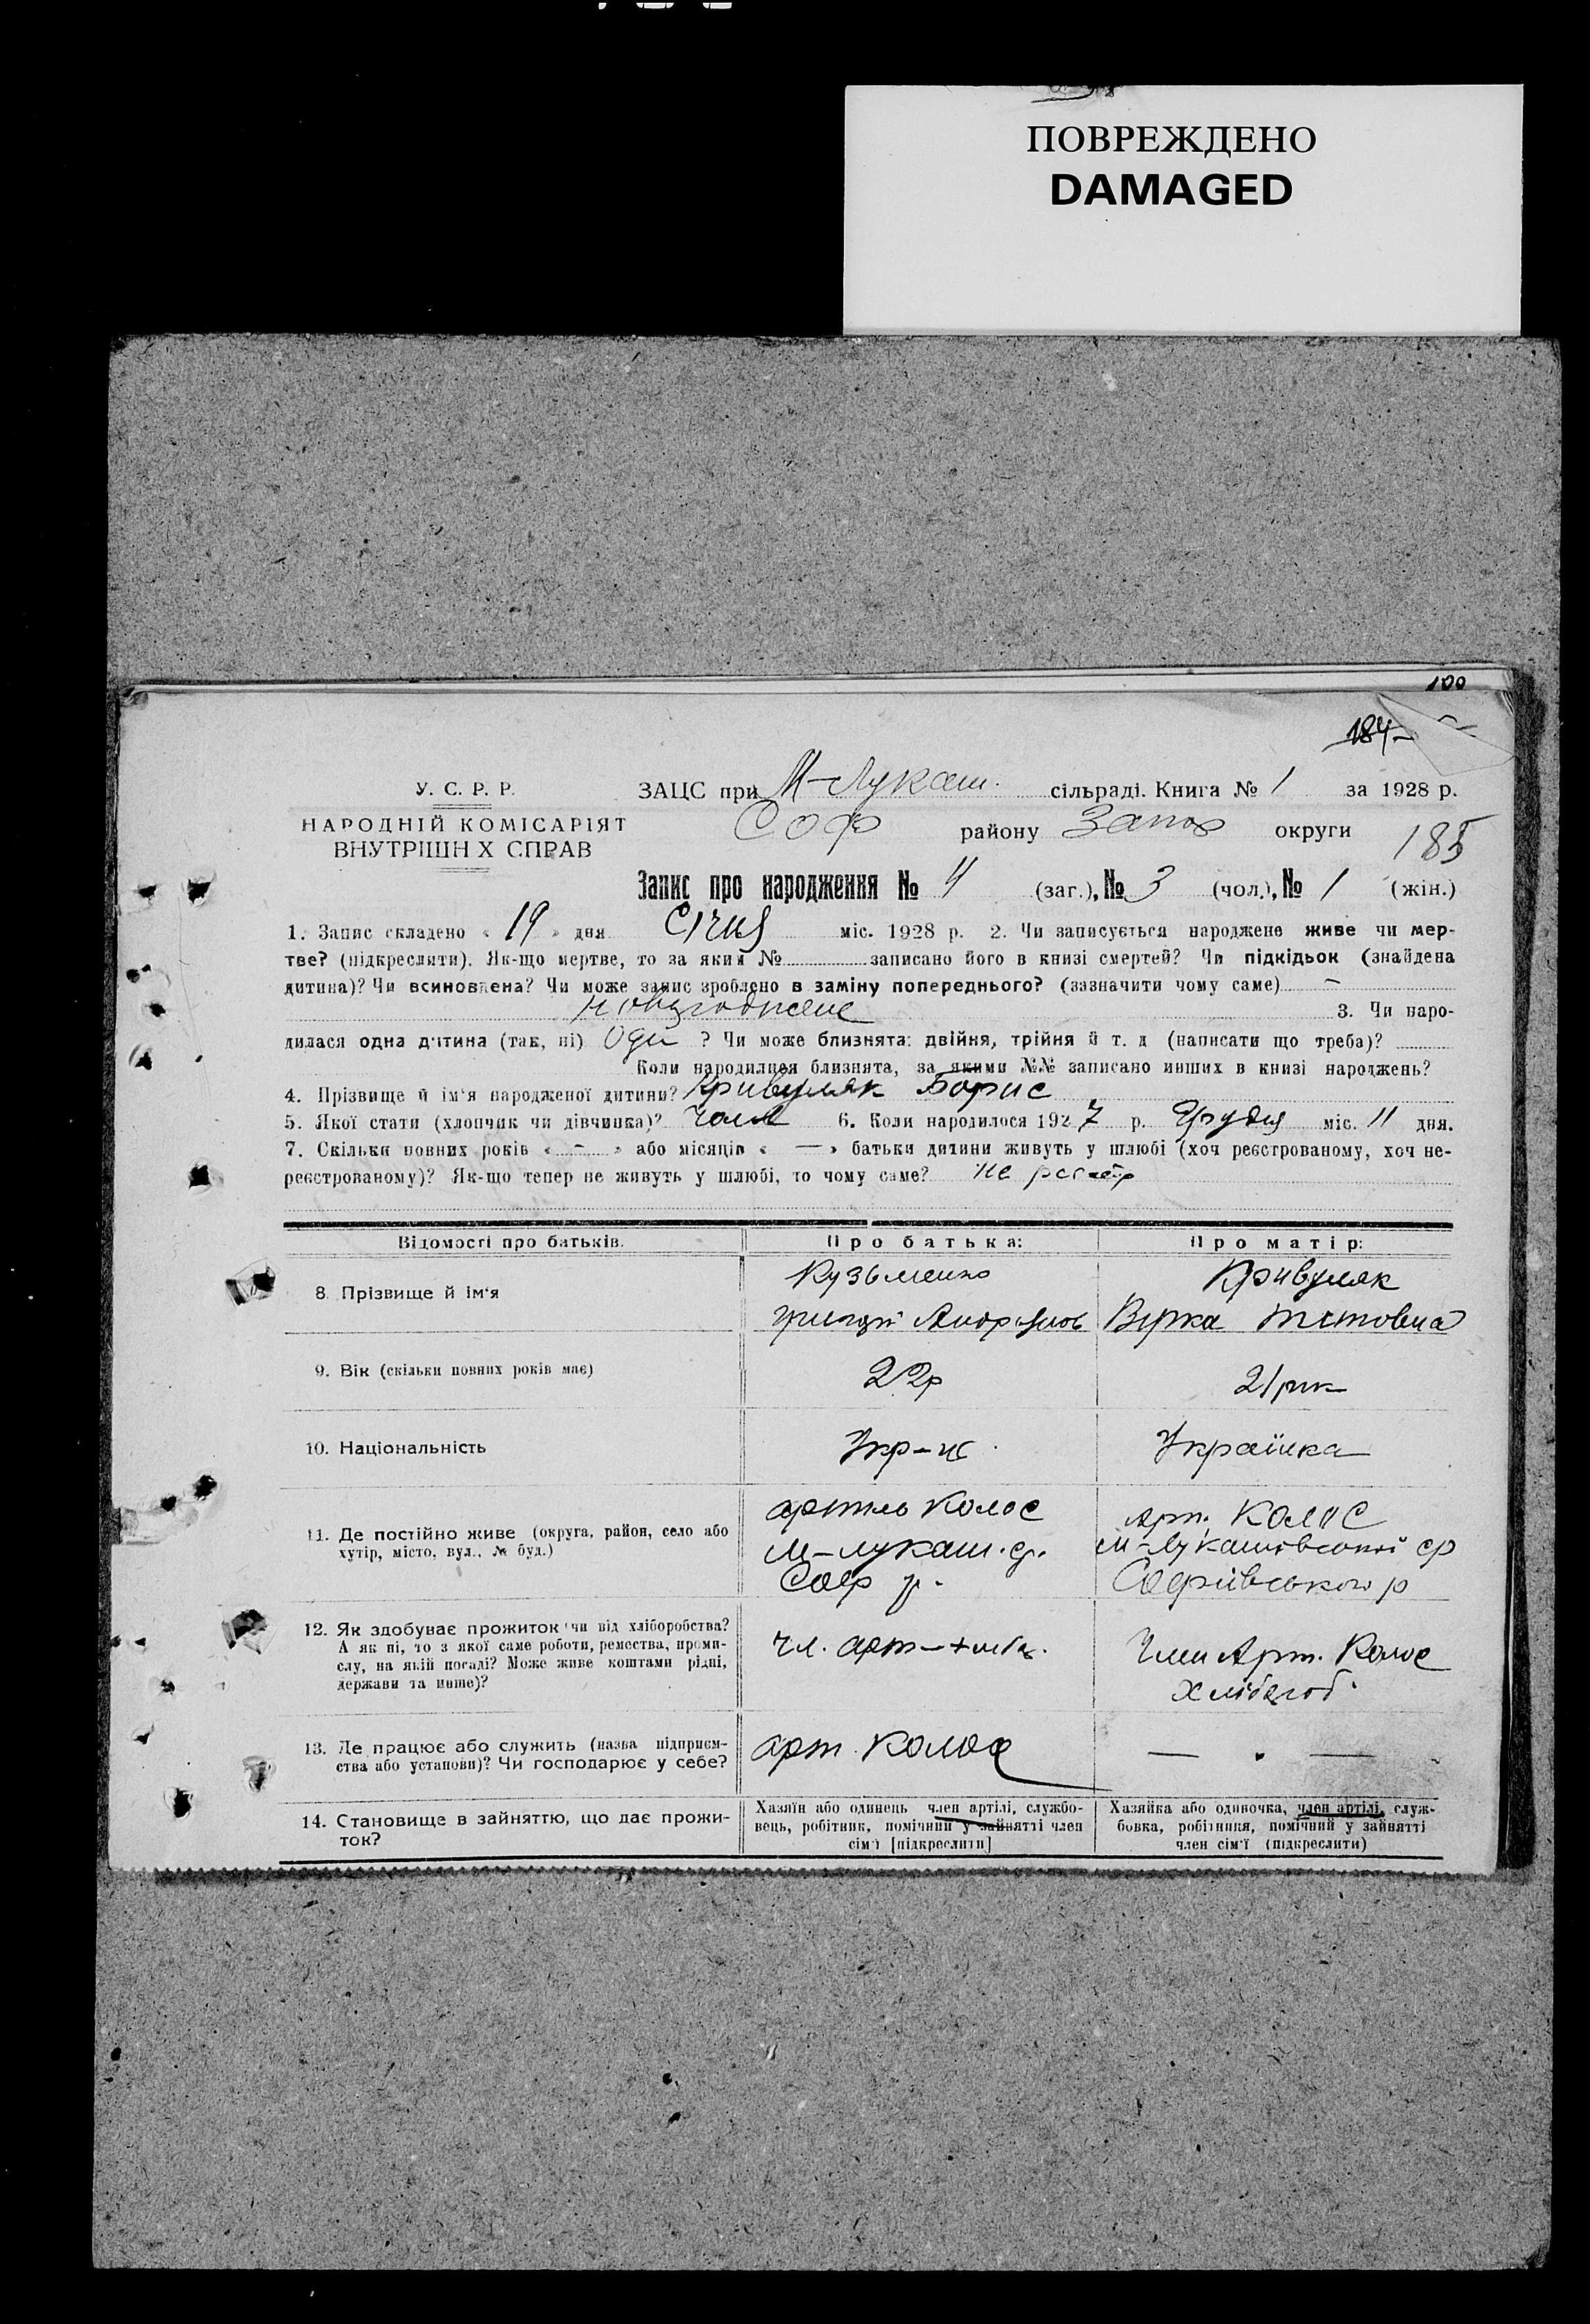 ПОВРЕЖДЕНО
DAMAGED
100
184
У. С. Р. Р.
ЗАЦС при М-Лукаш. сільраді. Книга № 1 за 1928 р.
НАРОДНІЙ КОМІСАРІЯТ
Соф району Запор округи
ВНУТРІШН Х СПРАВ
185
Запис про народження № 4 (заг.), № 3 (чол.), № 1 (жін.)
1. Запис складено « 19 » дня Січня міс. 1928 р. 2. Чи записується народжене живе чи мер-
тве? (підкреслити). Як-що мертве, то за яким № записано його в книзі смертей? Чи підкідьок (знайдена
дитина)? Чи всиновлена? Чи може запис зроблено в заміну попереднього? (зазначити чому саме) –
3. Чи наро-
дилася одна дитина (так, ні) Оди ? Чи може близнята: двійня, трійня й т. д (написати що треба)?
Коли народилися близнята, за якими №№ записано инших в книзі народжень?
4. Прізвище й ім'я народженої дитини? Кривуляк Борис
5. Якої стати (хлопчик чи дівчинка)? Чол 6. Коли народилося 1927 р. Грудня міс. 11 дня.
7. Скільки повних років « – » або місяців « — » батьки дитини живуть у шлюбі (хоч реєстрованому, хоч не-
реєстрованому)? Як-що тепер не живуть у шлюбі, то чому саме? не реєстр
Відомості про батьків.
Про батька:
Про матір:
8. Прізвище й ім'я
Кузьменко
Андріянов
Кривуляк
Вірка Тітовна
9. Вік (скільки повних років має)
22р
21 рік
10. Національність
Укр-ц
Українка
11. Де постійно живе (округа, район, село або
хутір, місто, вул., № буд.)
артіль Колос
М-Лукаш. с.
Соф р.
Арт. Колос
М-Лукашівської ср
Софіївського р
12. Як здобуває прожиток чи від хліборобства?
А як ні, то з якої саме роботи, ремества, проми-
слу, на якій посаді? Може живе коштами рідні,
держави та инше)?
чл. арт-
Член Арт. Колос
Хлібороб.
13. Де працює або служить (назва підприєм-
ства або установи)? Чи господарює у себе?
арт. Колос
— . —
14. Становище в зайняттю, що дає прожи-
ток?
Хазяїн або одинець член артілі, службо-
вець, робітник, помічний у зайнятті член
сім'ї [підкреслити]
Хазяйка або одиночка, член артілі, служ-
бовка, робітниця, помічний у зайнятті
член сім'ї (підкреслити)